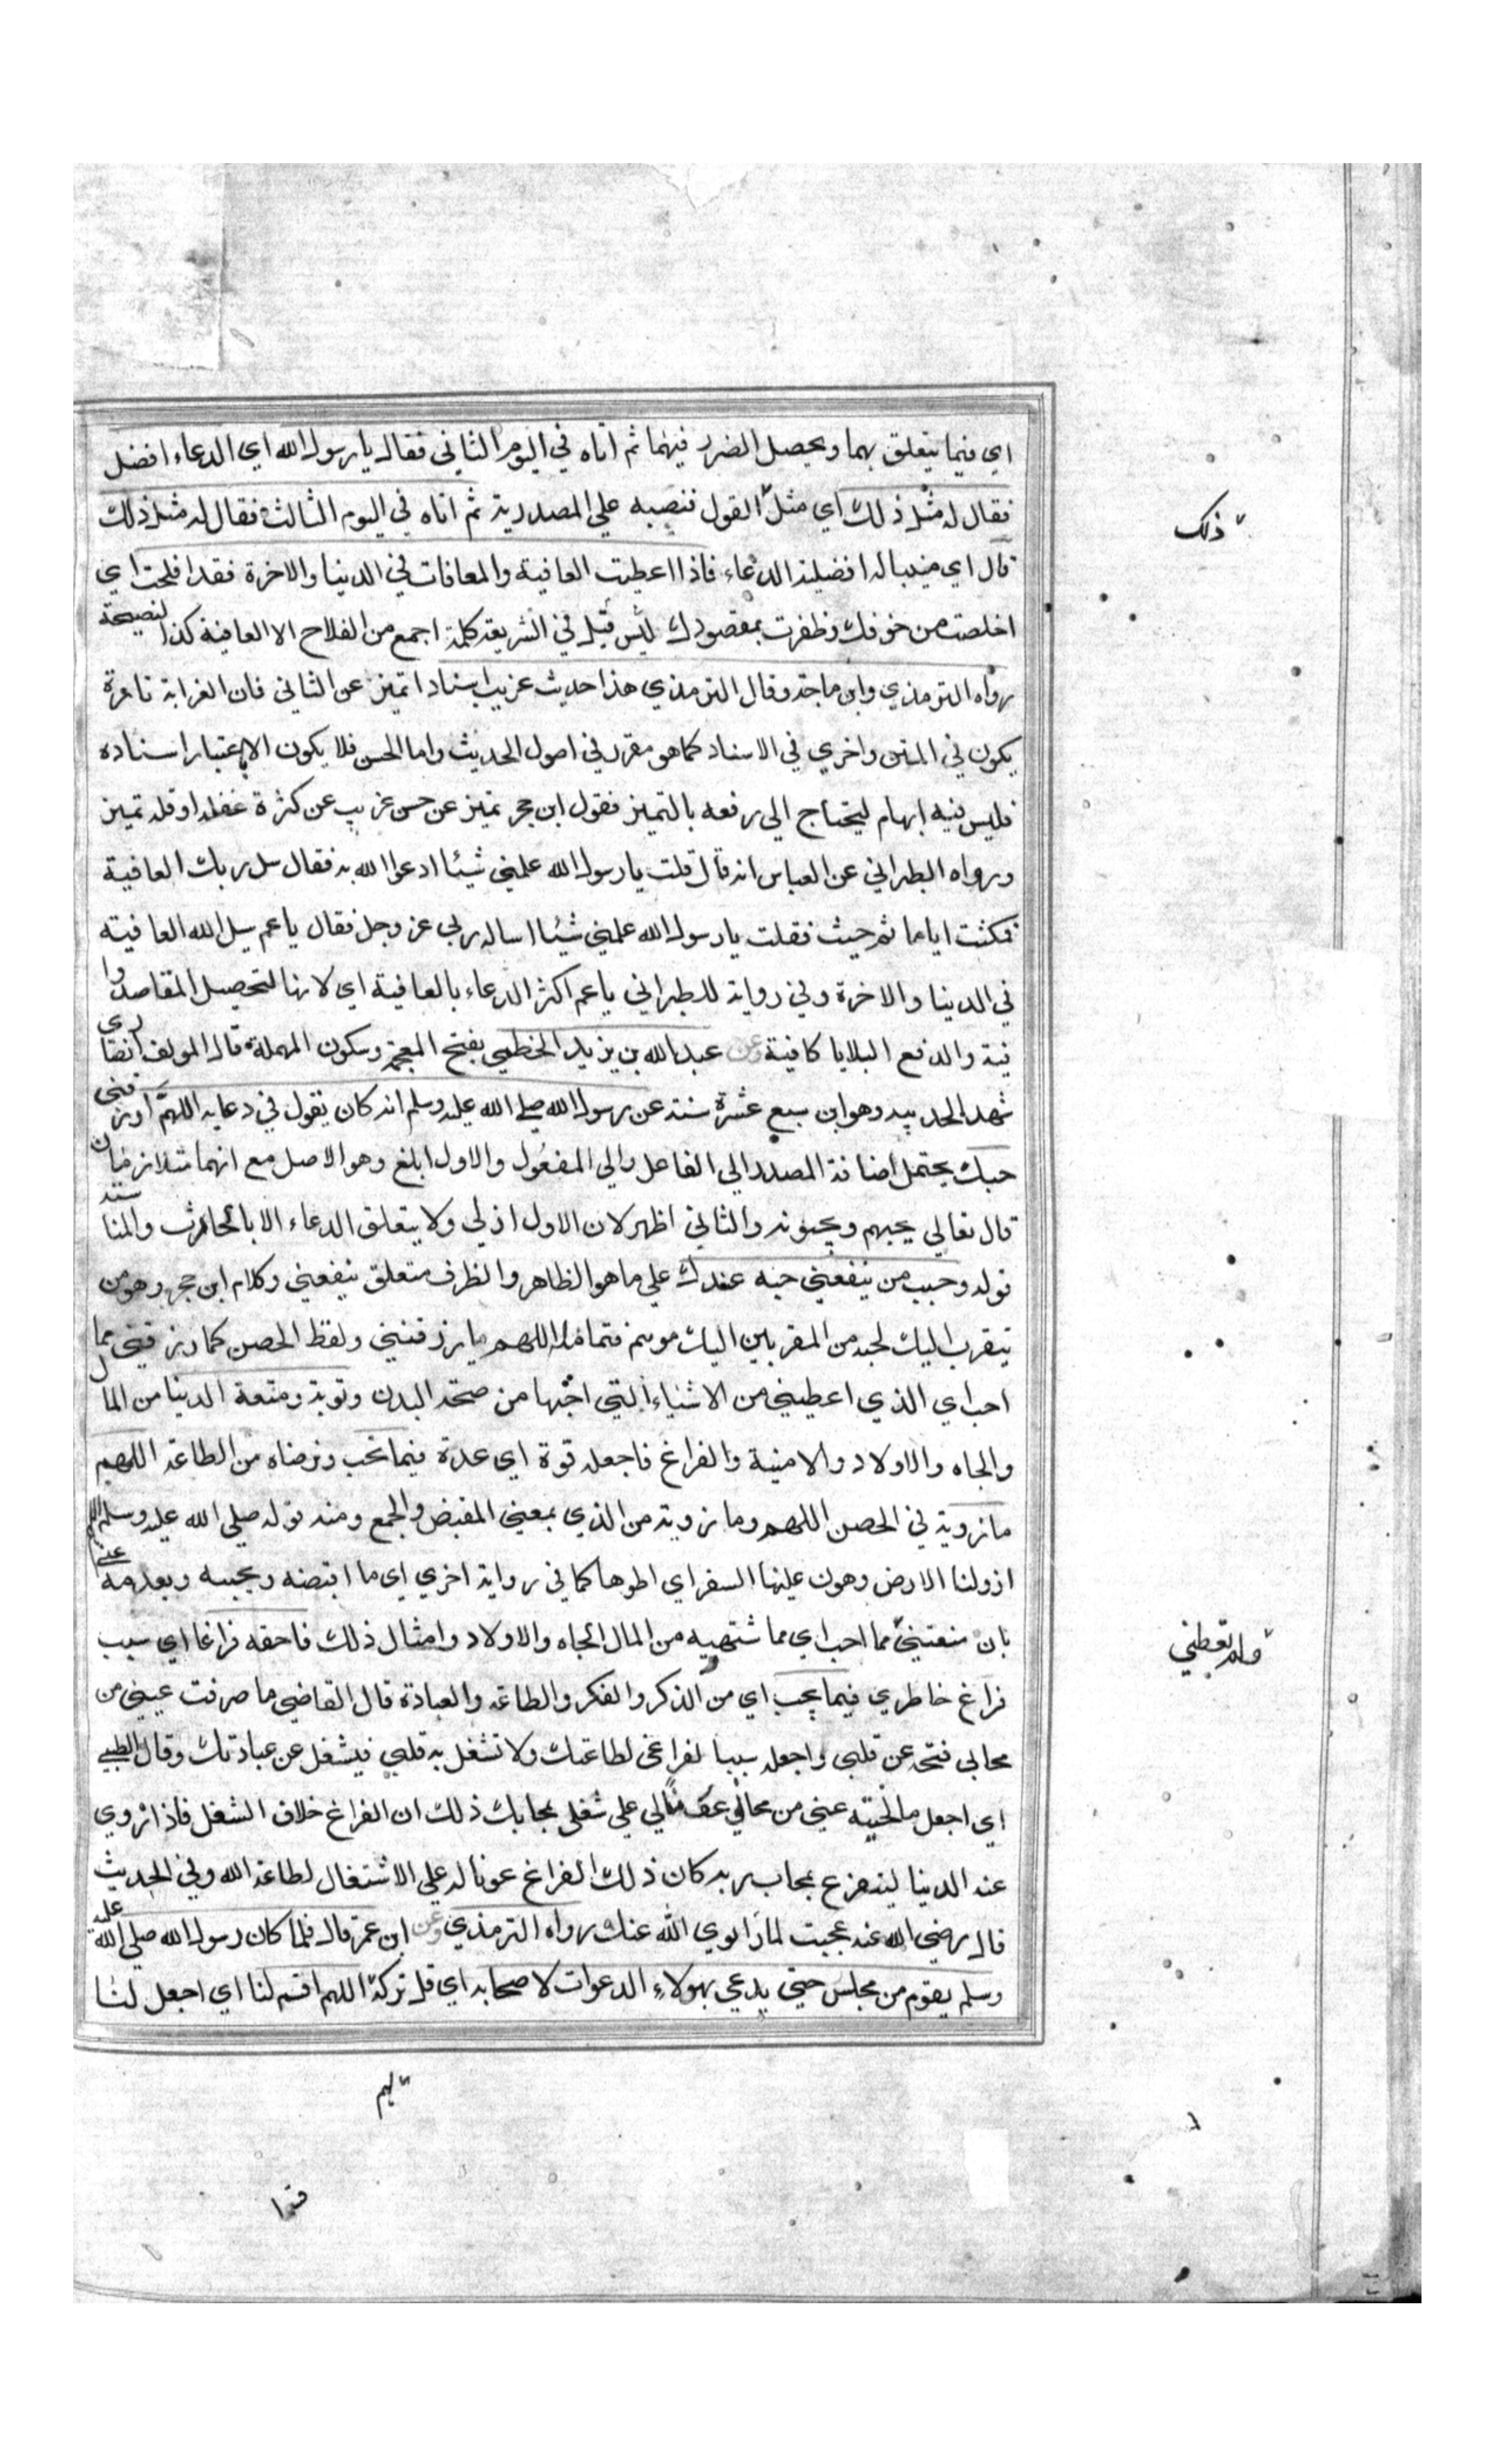 اي فيما يتعلق بهما ويحصل الضرر فيهما ثم اتاه في اليوم الثاني فقال يا رسول الله اي الدعاء افضل
فقال له مثل ذلك اي مثل القول فنصبه علي المصدرية ثم اتاه في اليوم الثالث فقال له مثل ذلك
ذلك
قال اي مينبا له افضلية الدعاء فاذا اعطيت العافية والمعافات في الدنيا والاخرة فقد افلحت اي
اخلصت من خوفك وظفرت بمقصودك ليس قيل في الشريعة كلمة اجمع من الفلاح الا العافية كذا لنصيحة
رواه الترمذي وابن ماجة وقال الترمذي هذا حديث غريب اسنادا تميز عن الثاني فان الغرابة تارة
يكون في المتن واخري في الاسناد كما هو مقرر في اصول الحديث واما الحسن فلا يكون الا باعتبار اسناده
فليس فيه ابهام ليحتاج الى رفعه بالتميز فقول ابن حجر تميز عن حسن غريب عن كثرة غفلة او قلة تميز
ورواه الطبراني عن العباس انه قال قلت يا رسول الله علمني شيئا ادعوا الله به فقال سل ربك العافية
فمكثت اياما ثم جيت فقلت يا رسول الله علمني شيئا اساله ربي عز وجل فقال يا عم سل الله العافية
في الدنيا والاخرة وفي رواية للطبراني يا عم اكثر الدعاء بالعافية اي لانها لتحصيل المقاصد وا
فية والدفع البلايا كافية وعن عبد الله بن يزيد الخطمي بفتح المعجمة وسكون المهملة قال المولف انصاري
شهد الحديبيه وهو ابن سبع عشرة سنة عن رسول الله صلي الله عليه وسلم انه كان يقول في دعايه اللهم ارزقني
حبك يحتمل اضافة المصدر الي الفاعل والي المفعول والاول ابلغ وهو الاصل مع انهما متلازمان
قال تعالي يحبهم ويحبونه والثاني اظهر لان الاول ازلي ولا يتعلق الدعاء الا بالحادث والمناسبة
قوله وحب من ينفعني حبه عندك علي ما هو الظاهر والظرف متعلق ينفعني وكلام ابن حجر وهو من
يتقرب اليك لحبه من المقربين اليك موسم فتامله اللهم ما رزقتني ولفظ الحصن كما رزقتني مما
احب اي الذي اعطيني من الاشياء التي احبها من صحة البدن وقوته ومتعة الدنيا من المال
والجاه والاولاد والامنية والفراغ فاجعله قوة اي عدة فيما تحب وترضاه من الطاعة اللهم
ما زويت في الحصن اللهم وما زويت من الذي بمعني المقبض والجمع ومنه قوله صلي الله عليه وسلم اللهم
ازولنا الارض وهون علينا السفر اي اطوها كما في رواية اخري اي ما اقبضه ويحببه وبعدمه عني
بان منعتني مما احب اي مما شتهيه من المال الجاه والاولاد وامثال ذلك فاحقه فراغا اي سبب
ولم تعطني
فراغ خاطري فيما يحب اي من الذكر والفكر والطاعة والعبادة قال القاضي ما صرفت عيني من
محابي فتحه عن قلبي واجعله سببا لفراغى لطاعتك ولا تشغل به قلبي فيشغل عن عبادتك وقال الطيبي
اي اجعل ما لحيته عني من محابي عونا لي علي شغلي بمحابك ذلك ان الفراغ خلاف الشغل فاذا زوي
عنه الدنيا ليتفرع بمحاب ربه كان ذلك الفراغ عونا له علي الاشتغال لطاعة الله وفي الحديث
قال رضي الله عنه عجبت لما زوي الله عنك رواه الترمذي وعن ابن عمر قال فلما كان رسول الله صلي الله عليه
وسلم يقوم من مجلس حتي يدعي بهولاء الدعوات لاصحابه اي قل تركه اللهم اقسم لنا اي اجعل لنا